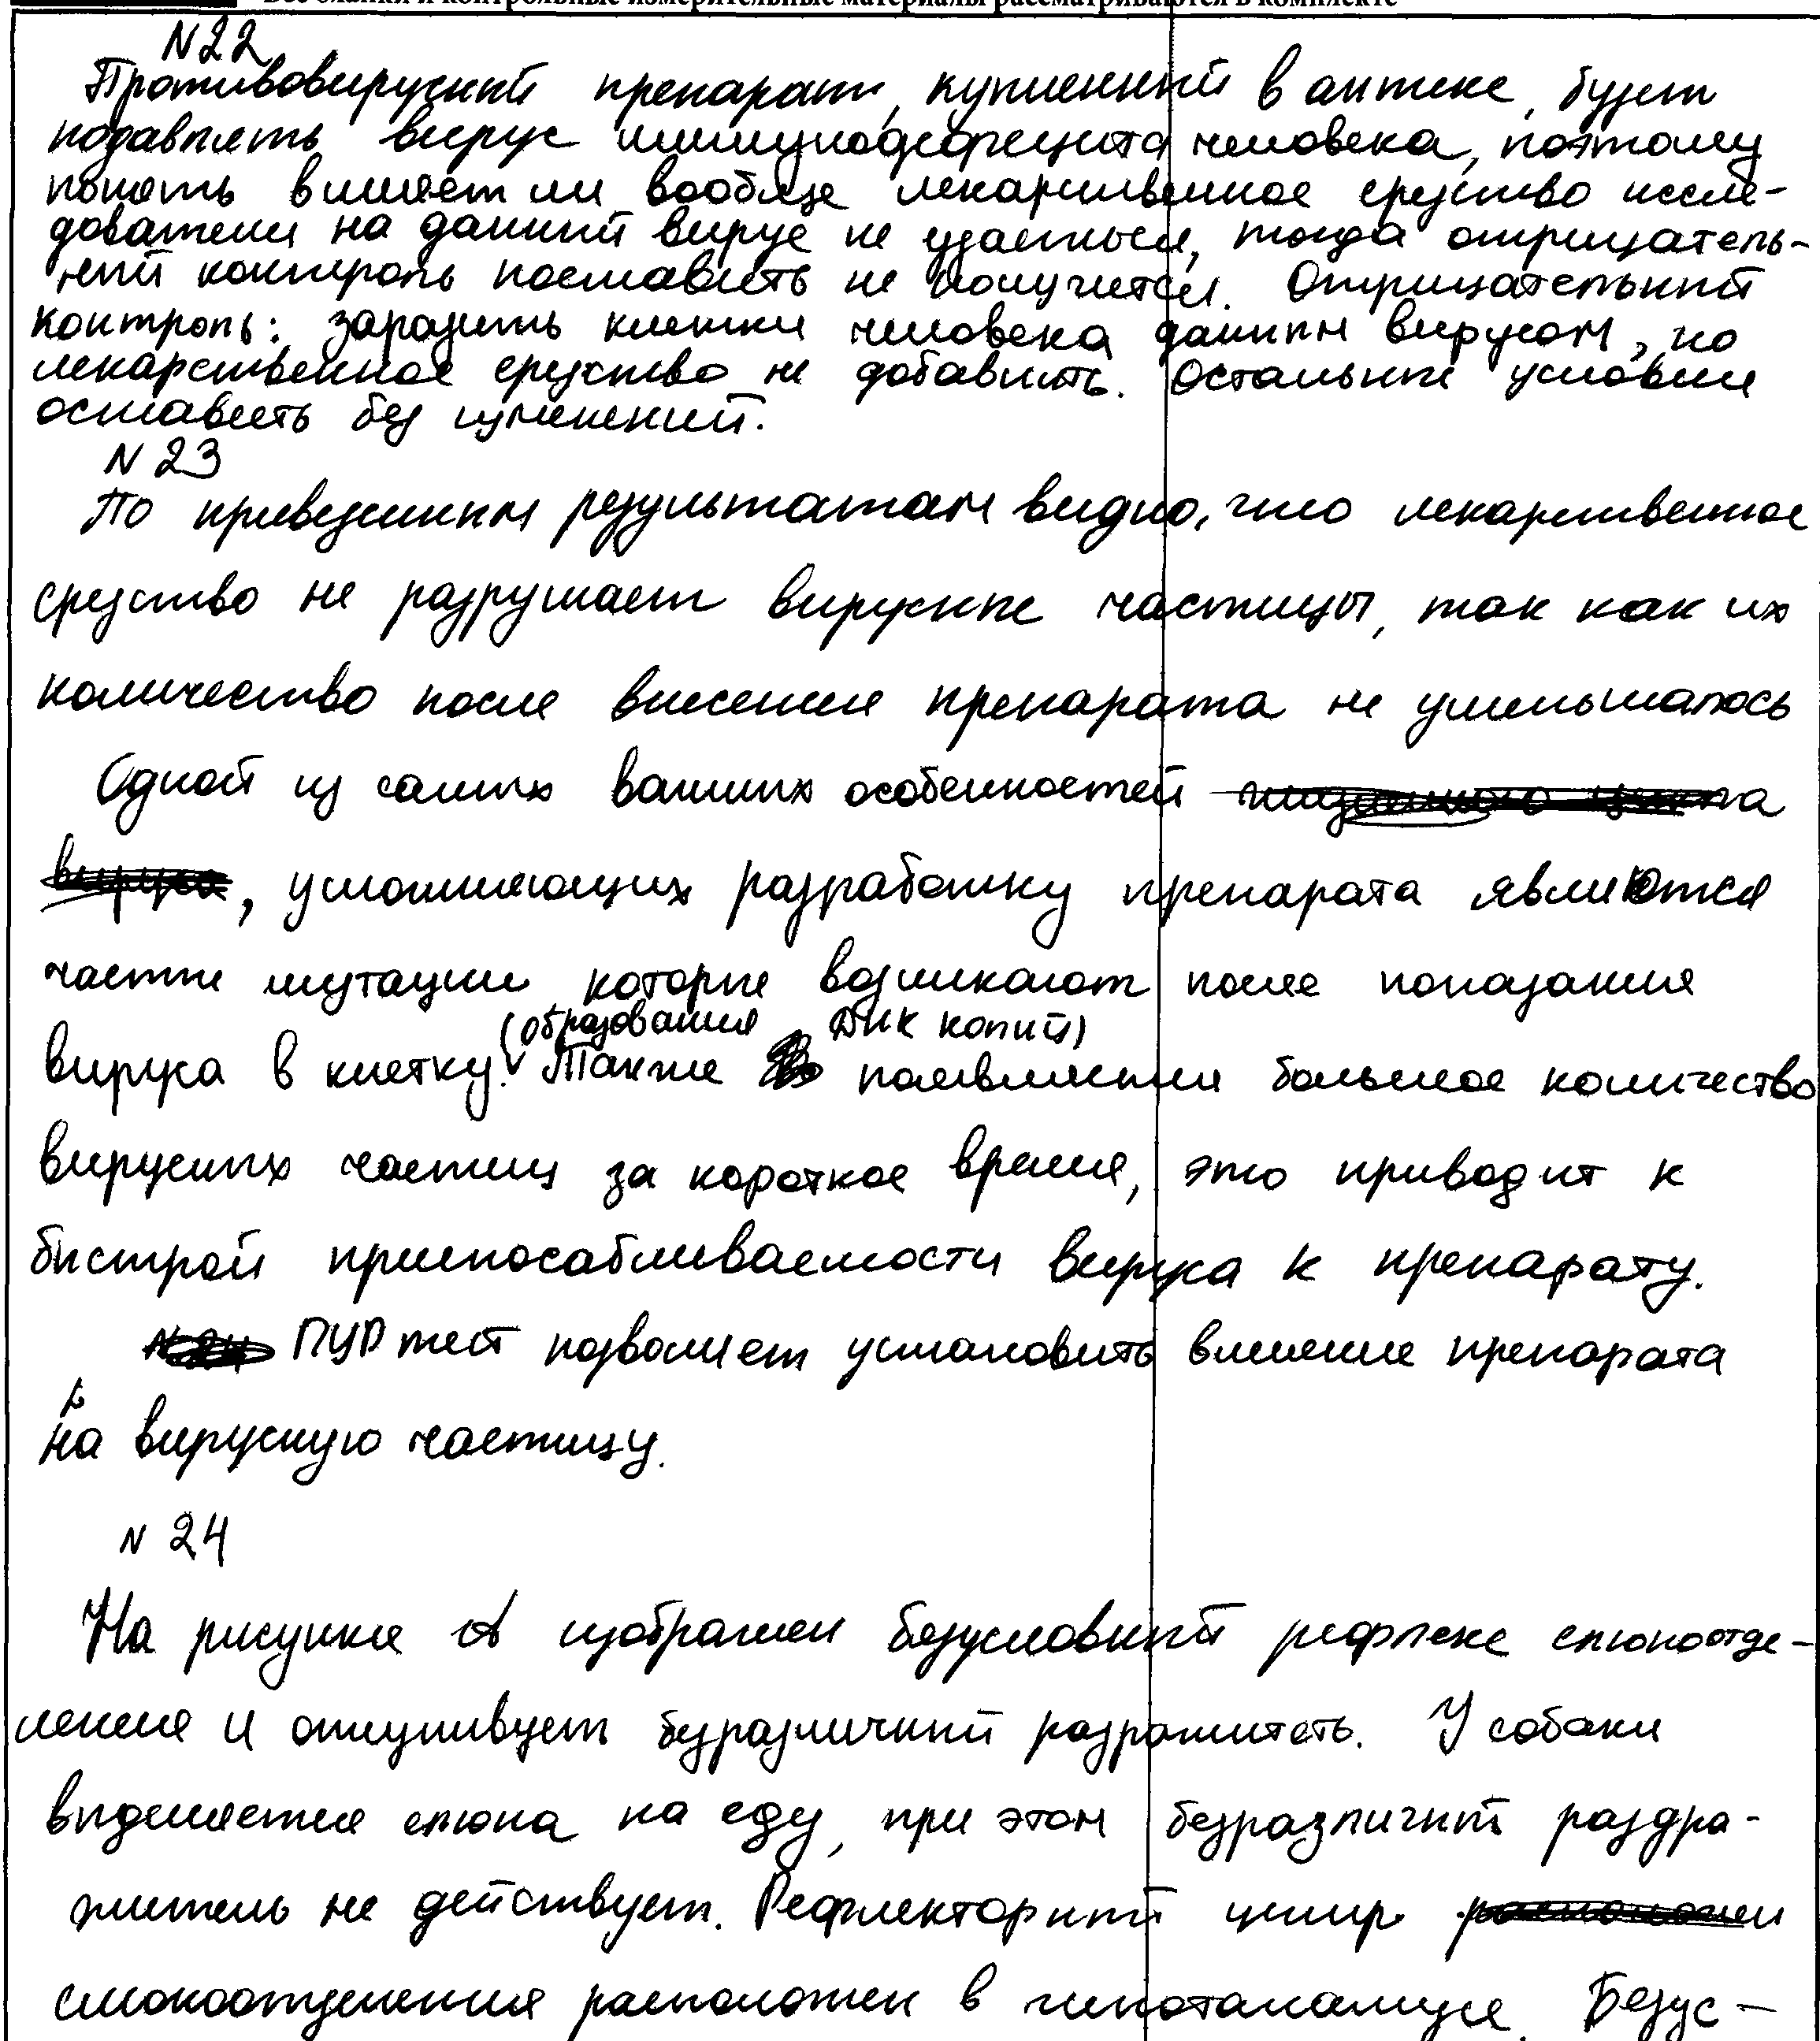 Все бланки и контрольные измерительные материалы рассматриваются в комплекте
N22
Противовирусный препарат, купленный в аптеке, будет
подавлять вирус иммунодефецита человека, поэтому
понять влияет ли вообще лекарственное средство иссле-
дователи на данный вирус не удасться, тогда отрицатель-
ный контроль поставить не получится. Отрицательный
контроль: заразить клетки человека данным вирусом, но
лекарственное средство не добавить. Остальные условия
оставить без изменений.
N 23
По приведенным результатам видно, что лекарственное
средство не разрушает вирусные частицы, так как их
количество после внесения препарата не уменьшалось
Одной из самых важных особенностей
, усложняющих разработку препарата являются
частые мутации которые возникают после попадания
(образования ДНК копий)
вируса в клетку. Также появляется большое количество
вирусных частиц за короткое время, это приводит к
быстрой приспосабливаемости вируса к препарату.
ПЦР тест позволяет установить влияние препарата
на вирусную частицу.
N 24
На рисунке А изображен безусловный рефлекс слюноотде-
ления и отсутствует безразличный раздражитель. У собаки
выделяется слюна на еду, при этом безразличный раздра-
житель не действует. Рефлекторный центр
слюноотделения расположен в гипоталамусе. Безус-